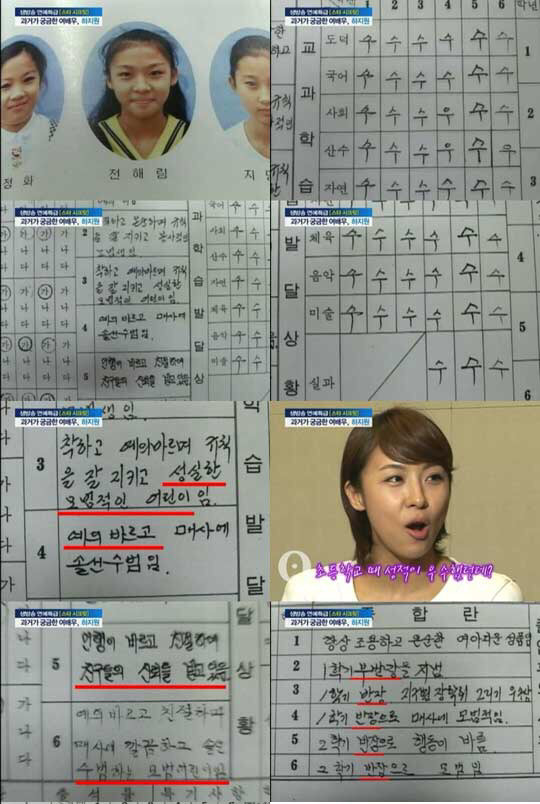 생방송 연예특급 [스타 시크릿]
과거가 궁금한 여배우, 하지원
정화
전해림
지
생방송 연예특급 [스타 시크릿]
과거가 궁금한 여배우, 하지원
1 2 3 4 5 6
학년
교과학습
도덕 수 수 수 수 수 수
국어 수 수 수 수 수 수
사회 수 수 수 우 수 수
산수 수 수 수 우 수 우
자연 수 수 수 수 수 수
1
2
3
생방송 연예특급 [스타 시크릿]
과거가 궁금한 여배우, 하지원
2
3 착하고 예의바르며 규칙
을 잘 지키고 성실한
모범적인 어린이임.
4 예의 바르고 매사에
솔선수범임.
5 언행이 바르고 친절하여
친구들의 신뢰를 받고 있음
과학습발달상
국어 수 수
사회 수 수
산수 수 수
자연 수 수
체육 수 수
음악 수 수
미술 수 수
생방송 연예특급 [스타 시크릿]
과거가 궁금한 여배우, 하지원
발달상황
체육 수 수 수 수 수 수
음악 수 수 수 수 수 수
미술 수 수 수 수 수 수
실과 수 수 수
4
5
6
생방송 연예특급 [스타 시크릿]
과거가 궁금한 여배우, 하지원
3 착하고 예의바르며 규칙
을 잘 지키고 성실한
모범적인 어린이임.
4 예의 바르고 매사에
솔선수범임.
습발달
생방송 연예특급 [스타 시크릿]
과거가 궁금한 여배우, 하지원
초등학교 때 성적이 우수했던데?
생방송 연예특급 [스타 시크릿]
과거가 궁금한 여배우, 하지원
5 언행이 바르고 친절하여
친구들의 신뢰를 받고 있음
6 예의 바르고 친절하며
매사에 깔끔하고 솔선
수범하는 모범어린이임
달상황
생방송 연예특급 [스타 시크릿]
과거가 궁금한 여배우, 하지원
종합란
1 항상 조용하고 온순한 여자다운 성품임
2 1학기 부반장을 지냄
3 1학기 반장
4 1학기 반장으로 매사에 모범적임.
5 2학기 반장으로 행동이 바름
6 2학기 반장으로 모범임